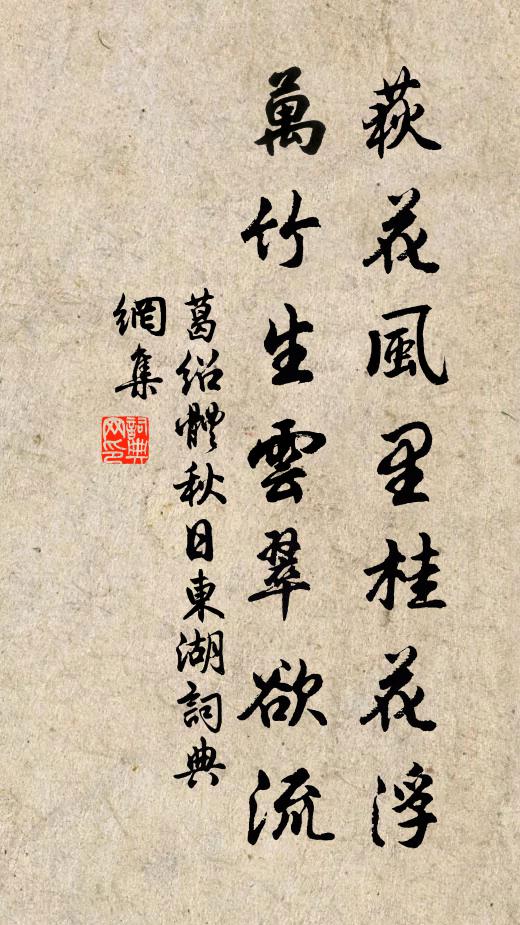 荻花風里桂花浮
萬竹生雲翠欲流
葛紹體秋日東湖詞典
網集
詞典
网印